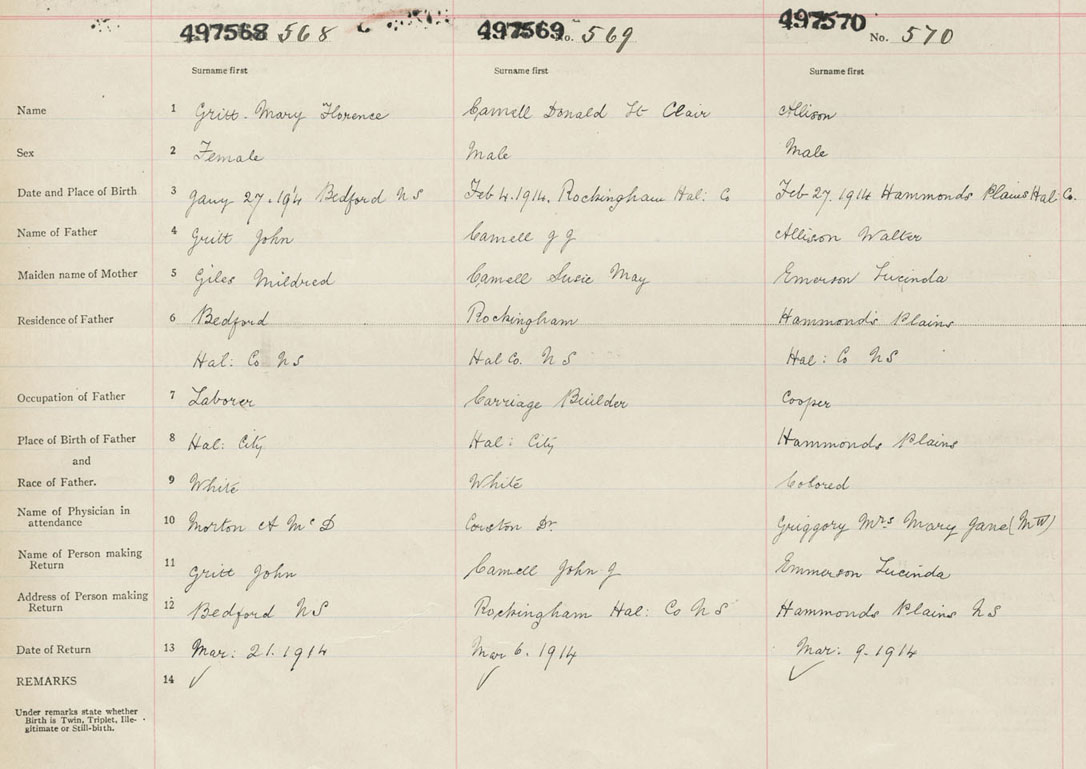 497568 568 497569 No. 569 497570 No. 570
Surname first Surname first Surname first
Name 1 Gritt. Mary Florence Camell Donald St Clair Allison
Sex 2 Female Male Male
Date and Place of Birth 3 Jany 27. 1914 Bedford NS Feb 4. 1914. Rockingham Hal: Co Feb 27. 1914 Hammonds Plains Hal Co.
Name of Father 4 Gritt John Camell J J Allison Walter
Maiden name of Mother 5 Giles Mildred Camell Susie May Emerson Lucinda
Residence of Father 6 Bedford Rockingham Hammonds Plains
Hal: Co NS Hal Co. NS Hal: Co NS
Occupation of Father 7 Laborer Carriage Builder Cooper
Place of Birth of Father 8 Hal: City Hal: City Hammonds Plains
and
Race of Father. 9 White White Colored
Name of Physician in
attendance 10 Morton A McD Dr. Griggory Mrs Mary Jane (MW)
Name of Person making
Return 11 Gritt John Camell John J Emmerson Lucinda
Address of Person making
Return 12 Bedford NS Rockingham Hal: Co NS Hammonds Plains NS
Date of Return 13 Mar: 21. 1914 Mar 6. 1914 Mar: 9. 1914
REMARKS 14
Under remarks state whether
Birth is Twin, Triplet, Ille-
gitimate or Still-birth.